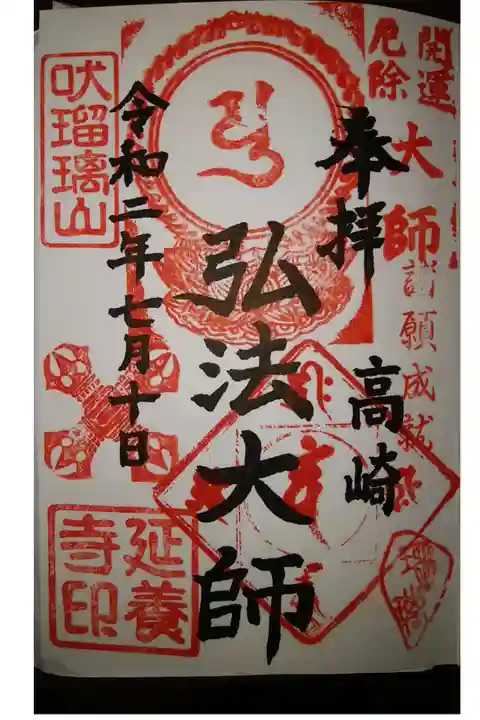 開運
厄除
大師
諸願成就
奉拝
高崎
弘法大師
令和二年七月十日
吠瑠璃山
延養
寺印